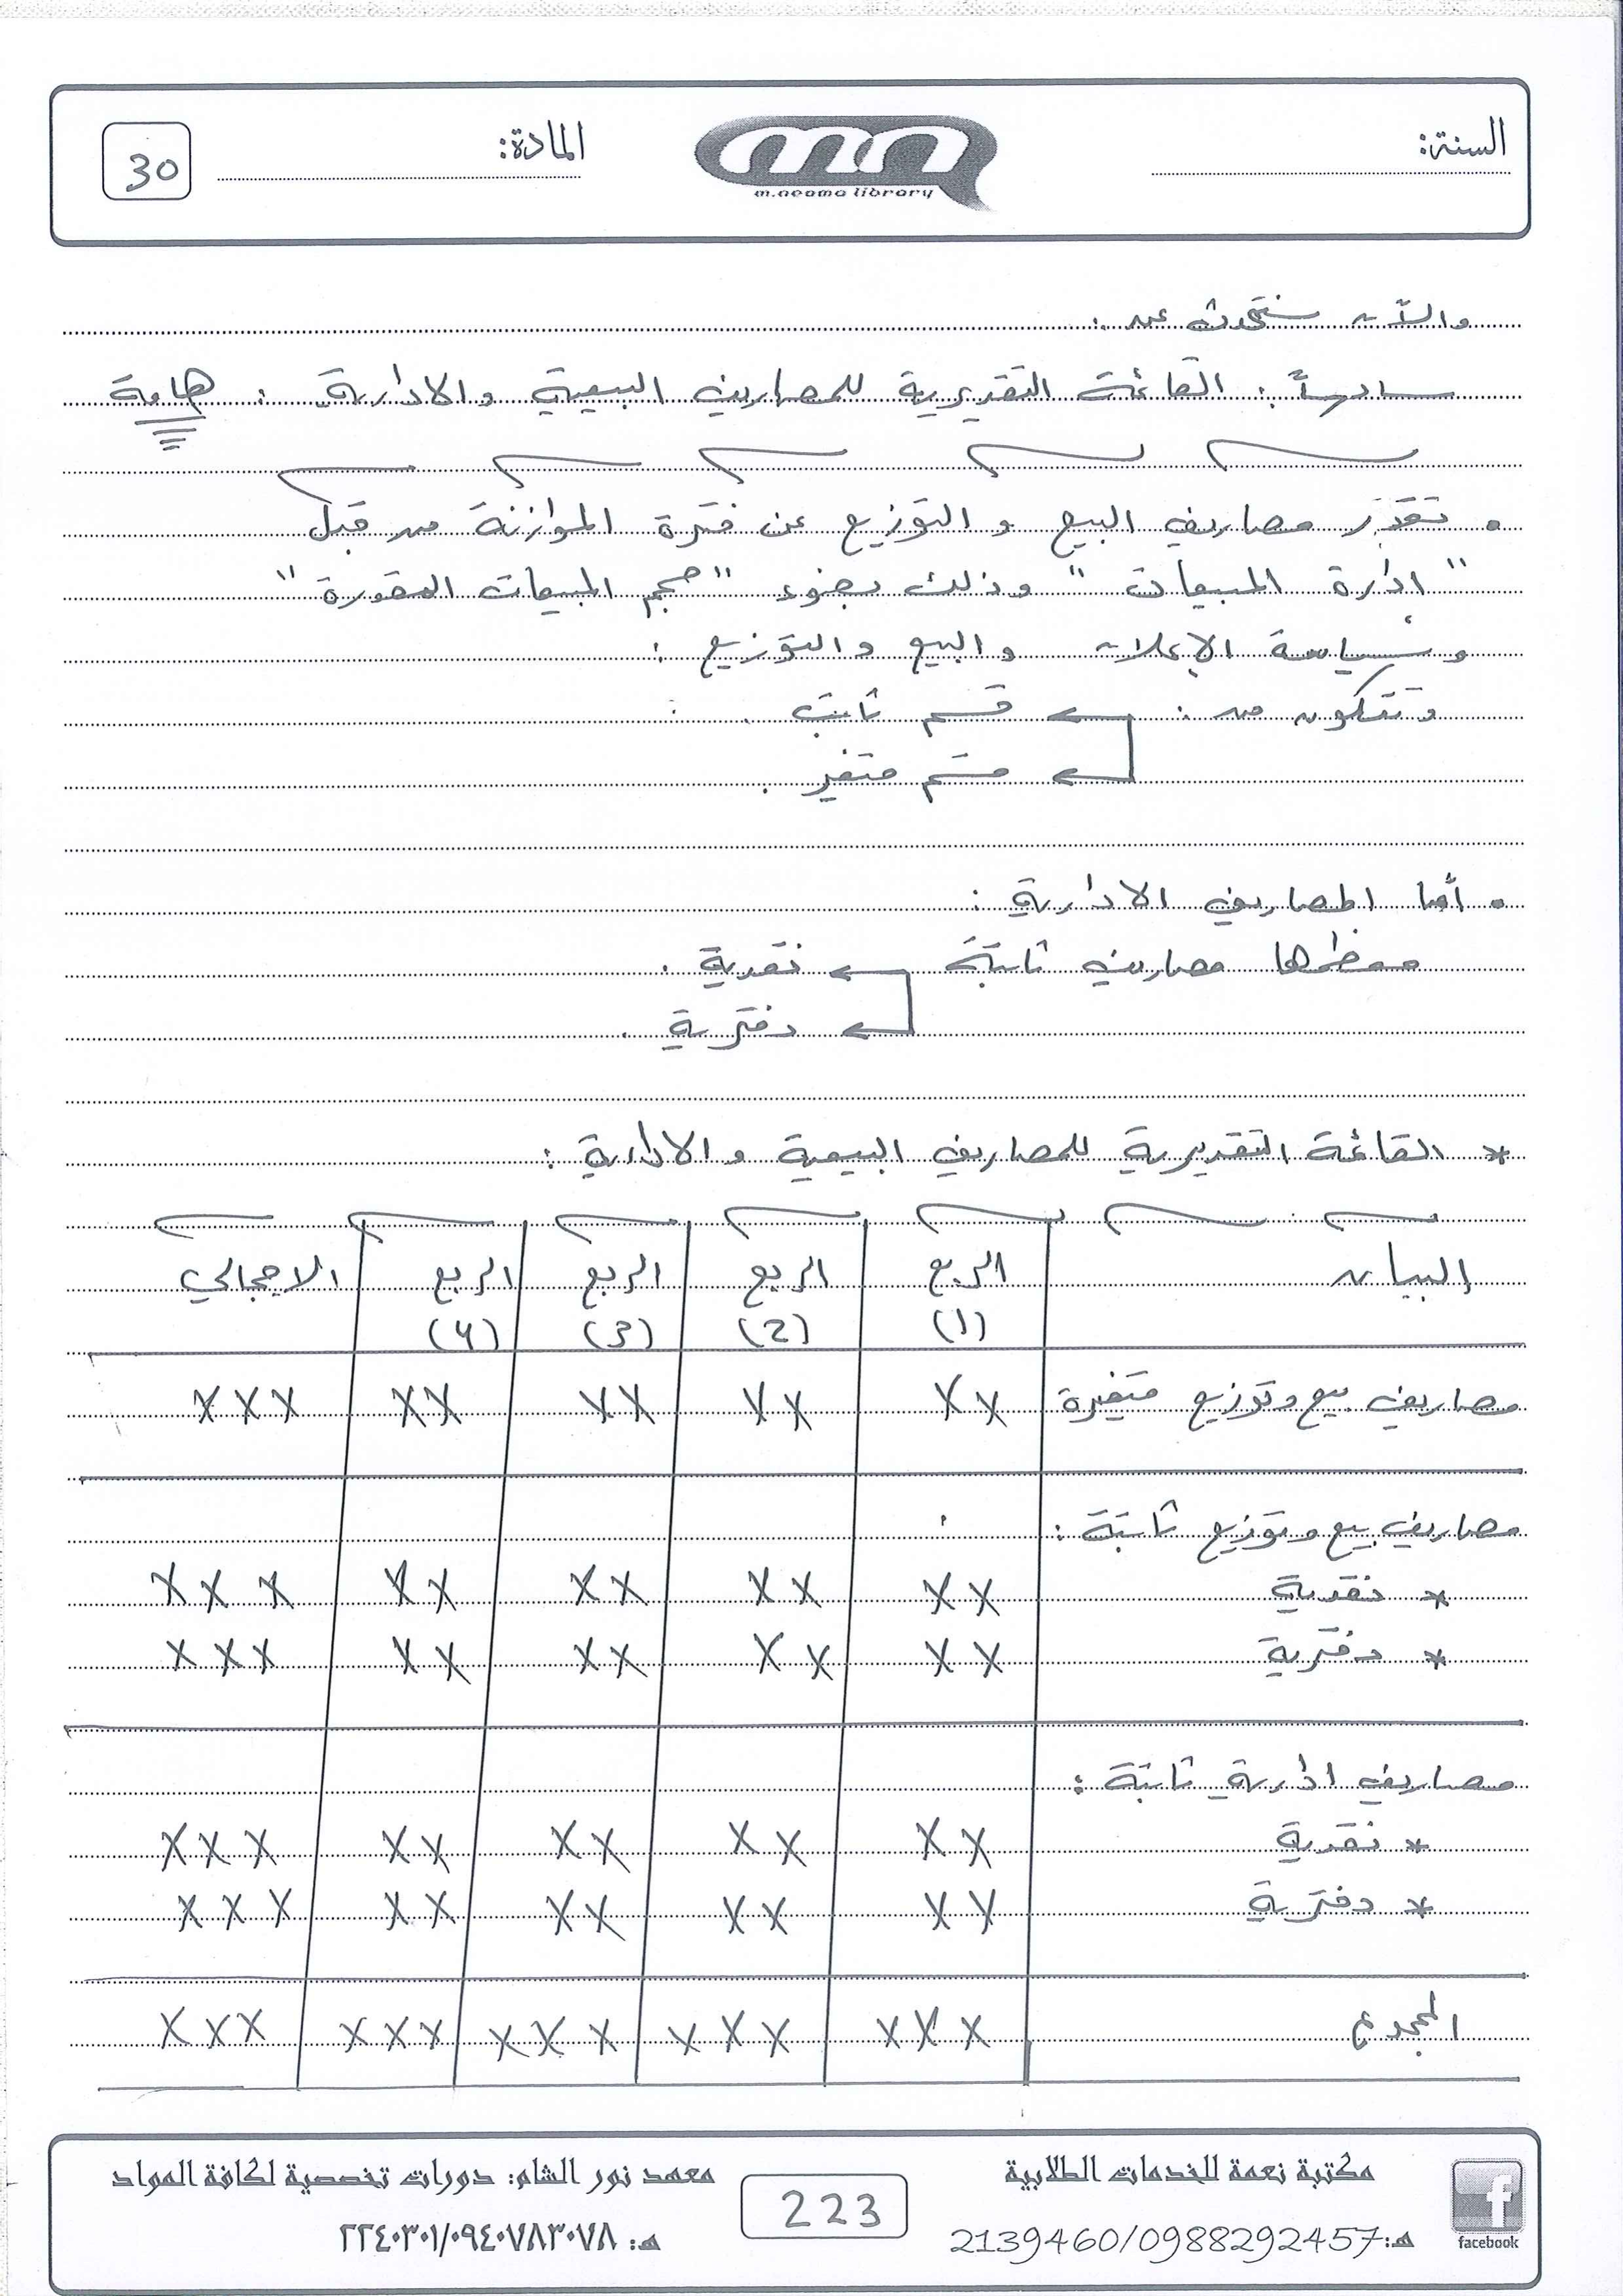 السنة:
المادة:
30
m.neoma library
والآن سنتحدث عن :
سادساً : القائمة التقديرية للمصاريف البيعية والادارية : هامة
• تقدّر مصاريف البيع و التوزيع عن فترة الموازنة من قبل
" ادارة المبيعات " وذلك بضوء " حجم المبيعات المقدرة "
وسياسة الإعلان والبيع والتوزيع :
وتتكون من : قسم ثابت .
قسم متغير .
• أما المصاريف الادارية :
معظمها مصاريف ثابتة نقدية .
دفترية .
* القائمة التقديرية للمصاريف البيعية و الادارية :
البيان الربع الربع الربع الربع الاجمالي
(1) (2) (3) (4)
مصاريف بيع وتوزيع متغيرة XX XX XX XX XXX
مصاريف بيع وتوزيع ثابتة :
* نقدية XX XX XX XX XXX
* دفترية XX XX XX XX XXX
مصاريف ادارية ثابتة :
* نقدية XX XX XX XX XXX
* دفترية XX XX XX XX XXX
المجموع XXX XXX XXX XXX XXX
مكتبة نعمة للخدمات الطلابية
هـ: 2139460/0988292457
facebook
223
معهد نور الشام: دورات تخصصية لكافة المواد
هـ: ٢٢٤٠٣٠١/٠٩٤٠٧٨٣٠٧٨